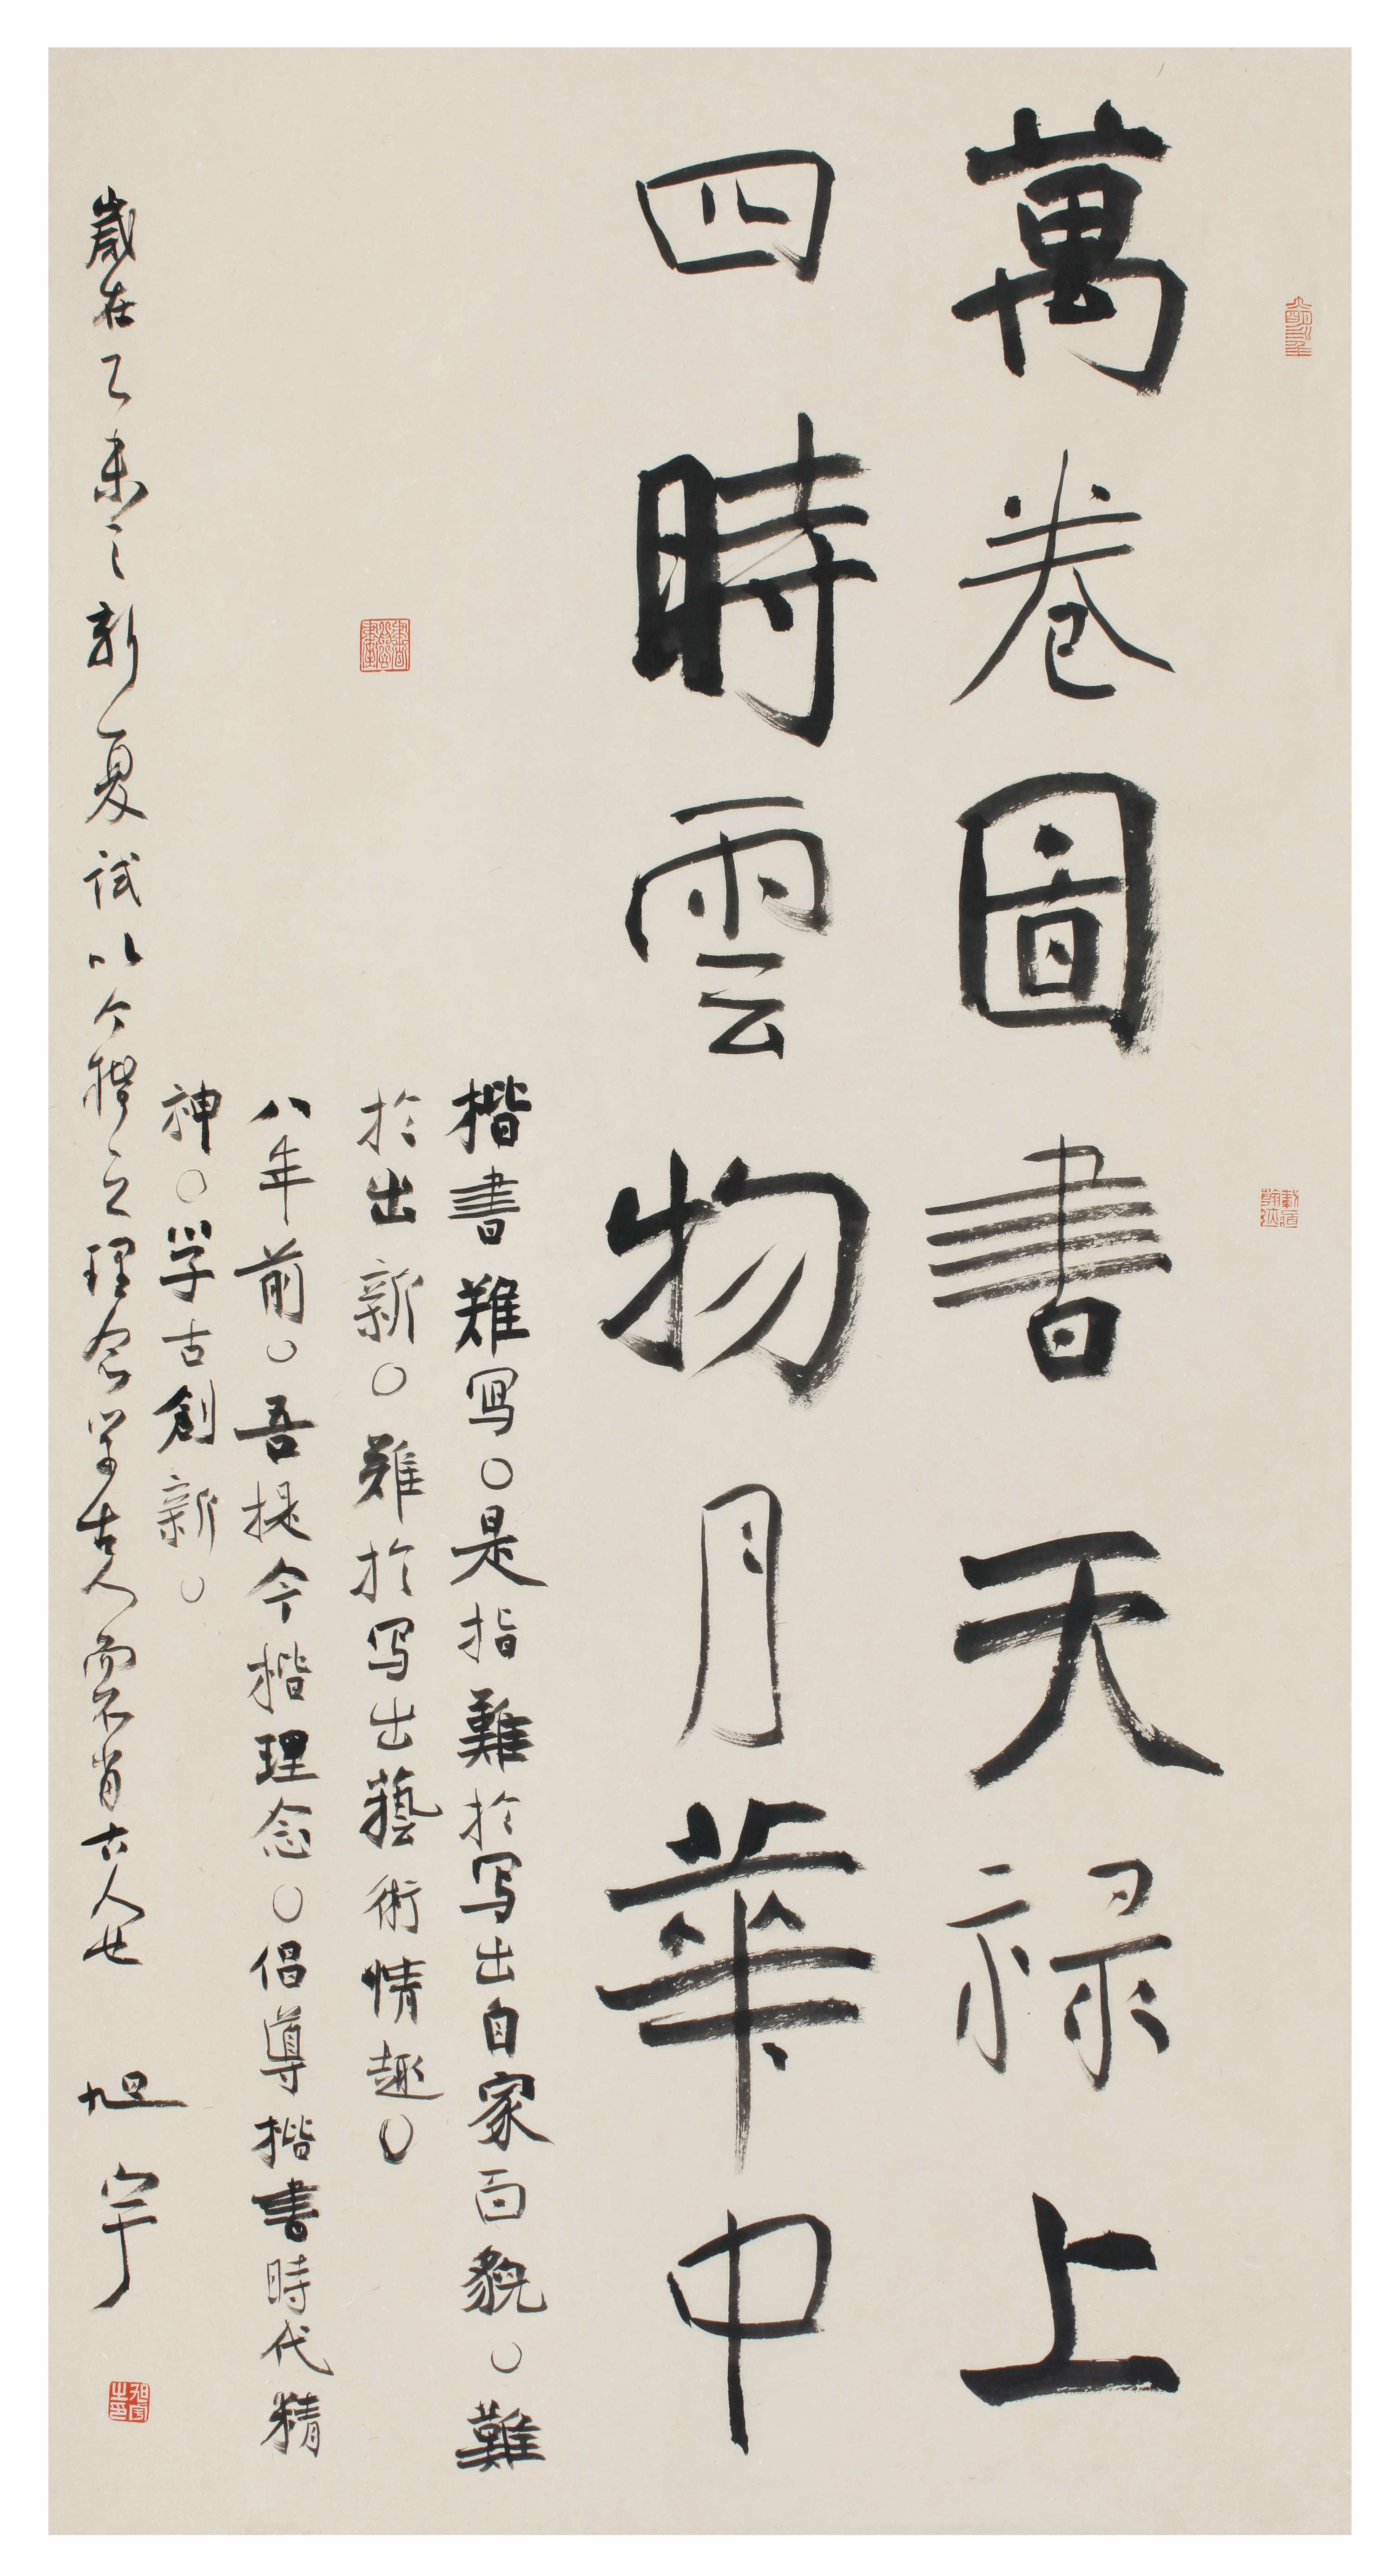 萬卷圖書天禄上
四時雲物月華中
楷書難写○是指難於写出自家面貌○難
於出新○難於写出藝術情趣○
八年前○吾提今楷理念○倡導楷書時代精
神○學古創新○
歲在乙未之新夏試以今楷之理念学古人而不肖古人也 旭宇
旭宇之印